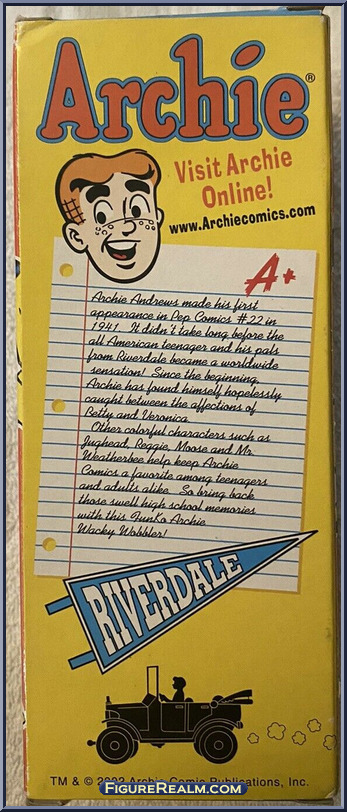 Archie®
Visit Archie
Online!
www.Archiecomics.com
A+
Archie Andrews made his first
appearance in Pep Comics #22 in
1941. It didn't take long before the
all American teenager and his pals
from Riverdale became a worldwide
sensation! Since the beginning,
Archie has found himself hopelessly
caught between the affections of
Betty and Veronica.
Other colorful characters such as
Jughead, Reggie, Moose and Mr.
Weatherbee help keep Archie
Comics a favorite among teenagers
and adults alike. So bring back
those swell high school memories
with this Funko Archie
Wacky Wobbler!
RIVERDALE
FigureRealm.com
TM & © Archie Comic Publications, Inc.